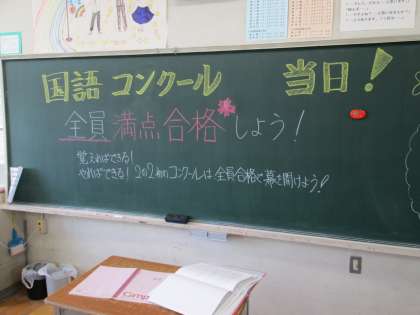 国語コンクール 当日！
全員満点合格しよう！
覚えればできる！
やればできる！2の2初のコンクールは全員合格で幕を開けよう！
Campus